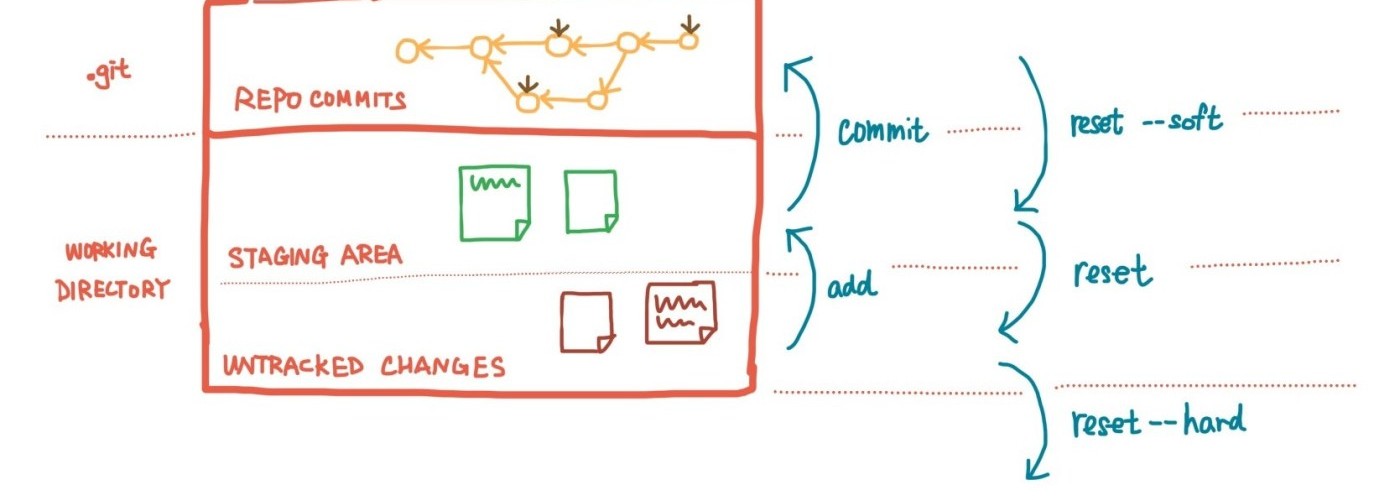 .git
REPO COMMITS
commit
reset --soft
WORKING
DIRECTORY
STAGING AREA
add
reset
UNTRACKED CHANGES
reset --hard